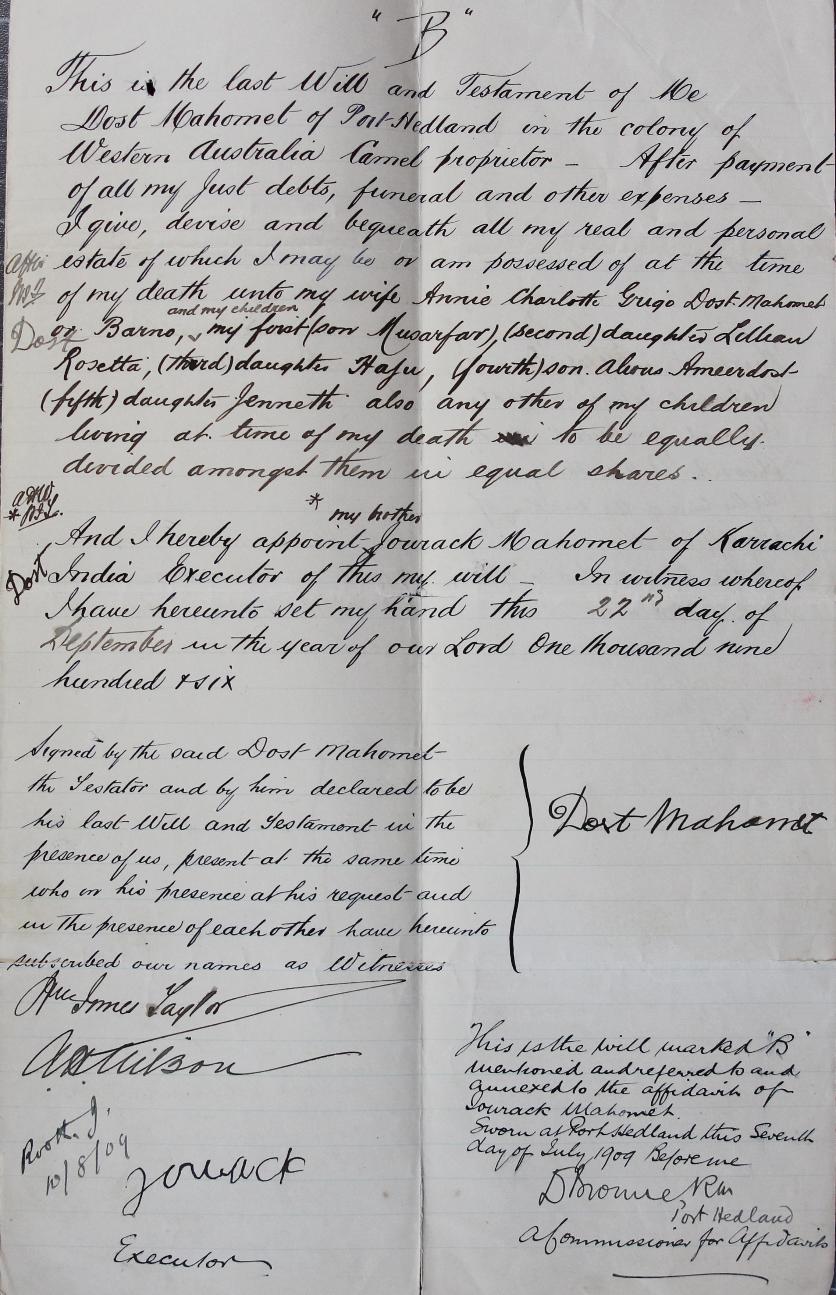 "B"
This is the last Will and Testament of Me
Dost Mahomet of Port Hedland in the colony of
Western Australia Camel proprietor – After payment
of all my Just debts, funeral and other expenses –
I give, devise and bequeath all my real and personal
estate of which I may be or am possessed of at the time
of my death unto my wife Annie Charlotte Grigo Dost Mahomet
and my children
or Barno, my first (son Musarfar), (second) daughter Lillian
Dost
Rosetta, (third) daughter Haju, (fourth) son. Ameerdost
(fifth) daughter Jenneth also any other of my children
living at time of my death to be equally
divided amongst them in equal shares.
* my brother
And I hereby appoint Jourack Mahomet of Karrachi
Dost
India Executor of this my will – In witness whereof
I have hereunto set my hand this 22nd day of
September in the year of our Lord One thousand nine
hundred & six
Signed by the said Dost Mahomet
the Testator and by him declared to be
his last Will and Testament in the
presence of us, present at the same time
who in his presence at his request and
in the presence of each other have hereunto
subscribed our names as Witnesses
Dost Mahomet
Wm James Taylor
A W Wilson
Rooth. J.
10/8/09
Jourack
Executor
This is the will marked "B"
mentioned and referred to and
annexed to the affidavit of
Jourack Mahomet.
Sworn at Port Hedland this Seventh
day of July 1909 Before me
Port Hedland
A Commissioner for Affidavits